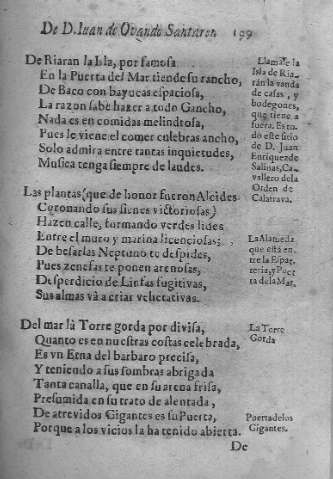 De D. Iuan de Ovando Santaren 199
De Riaran la Isla, por famosa
En la Puerta del Mar tiende su rancho,
De Baco con bayucas espaciosa,
La razon sabe hazer a todo Gancho,
Nada es en comidas melindrosa,
Pues le viene el comer culebras ancho,
Solo admira entre tantas inquietudes,
Musica tenga siempre de laudes.
Llamase la
Isla de Ria-
rán la vanda
de casas, y
bodegones,
que tiene a
fuera. Es to-
do este sitio
de D. Juan
Enriquez de
Salinas, Ca-
vallero de la
Orden de
Calatrava.
Las plantas (que de honor fueron Alcides
Coronando sus sienes victoriosas)
Hazen calle, formando verdes lides
Entre el muro y marina licenciosas;
De besarlas Neptuno te despides,
Pues zenefas te ponen arenosas,
Desperdicio de Linfas fugitivas,
Sus almas vá a criar vejetativas.
La Alameda
que está en-
tre la Espar-
teria, y Puer
ta de la Mar.
Del mar là Torre gorda por divisa,
Quanto es en nuestras costas celebrada,
Es vn Etna del barbaro precisa,
Y teniendo a sus sombras abrigada
Tanta canalla, que en su arena frisa,
Presumida en su trato de alentada,
De atrevidos Gigantes es su Puerta,
Porque a los vicios la ha tenido abierta.
La Torre
Gorda
Puerta de los
Gigantes.
De